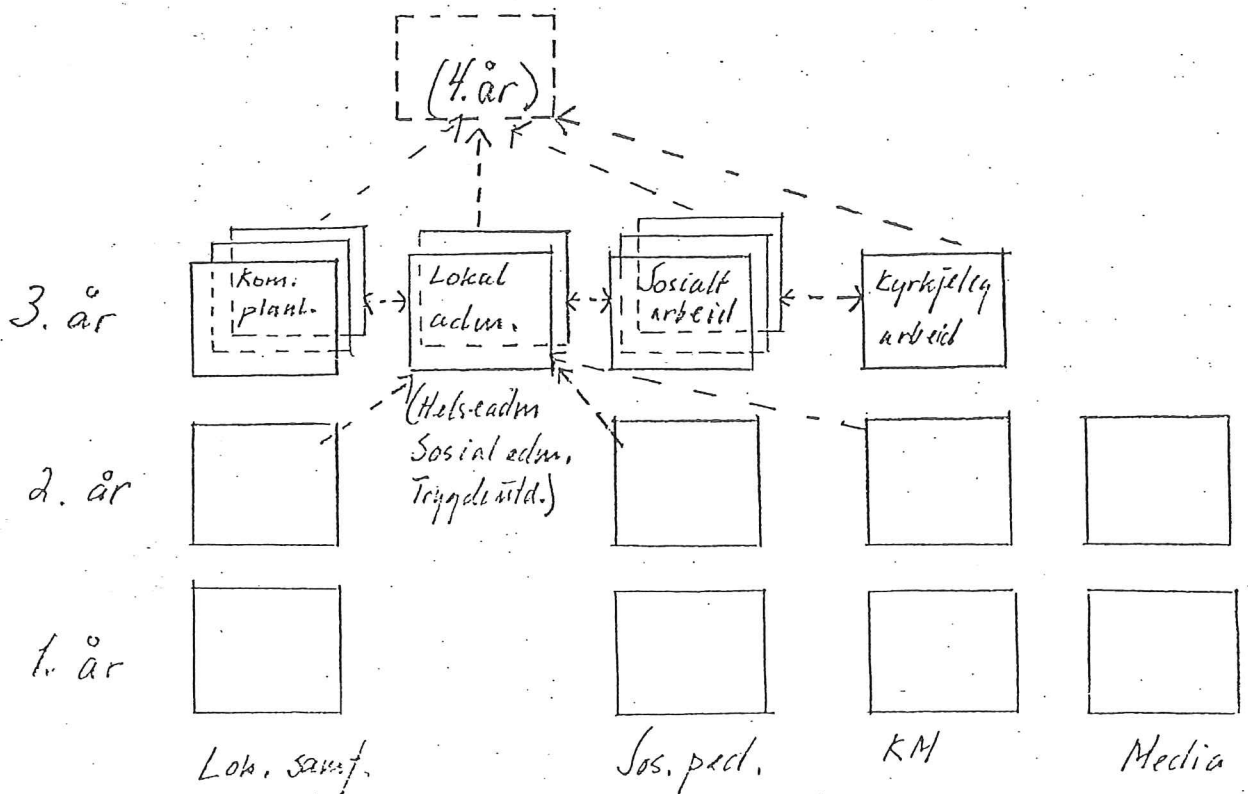 (4. år)
3. år
Kom.
planl.
Lokal
adm.
Sosialt
arbeid
Kyrkjeleg
arbeid
(Helseadm
Sosialadm.
Trygdeutd.)
2. år
1. år
Lok. samf.
Sos. ped.
KM
Media